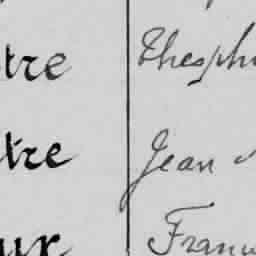 tre Theophi
tre Jean
ux Franc